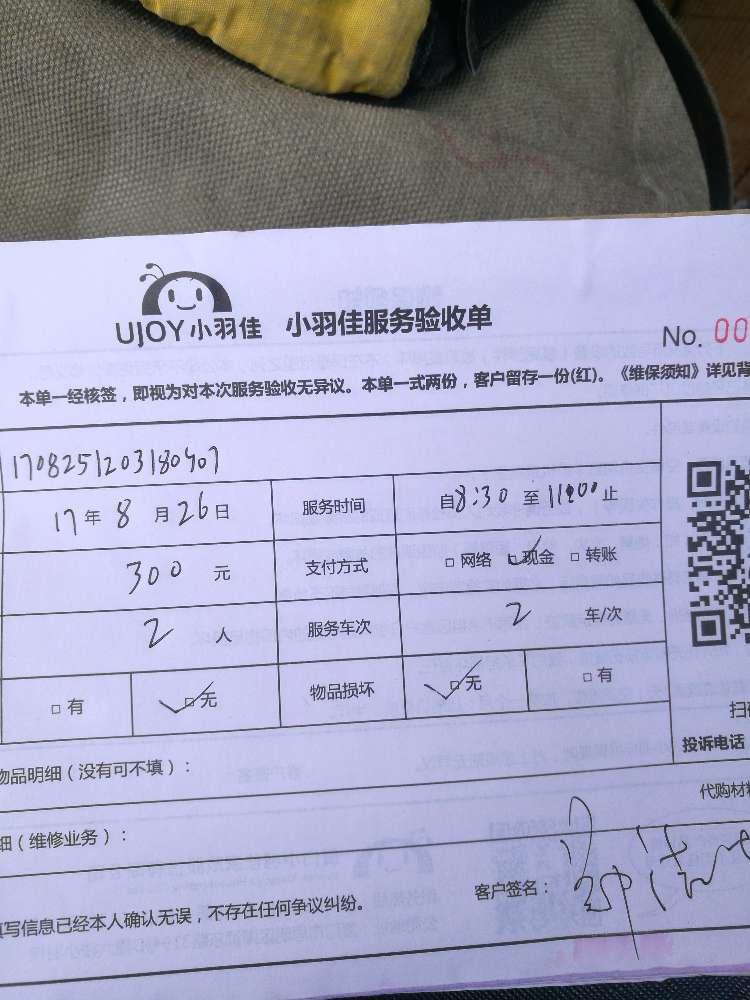 UJOY小羽佳 小羽佳服务验收单
No. 00
本单一经核签，即视为对本次服务验收无异议。本单一式两份，客户留存一份(红)。《维保须知》详见背
170825120318040
17年8月26日 服务时间 自8:30至11:00止
300元 支付方式 □网络 ☑现金 □转账
2人 服务车次 2车/次
□有 ☑无 物品损坏 ☑无 □有
物品明细（没有可不填）：
扫
投诉电话
代购材料
细（维修业务）：
填写信息已经本人确认无误，不存在任何争议纠纷。
客户签名：